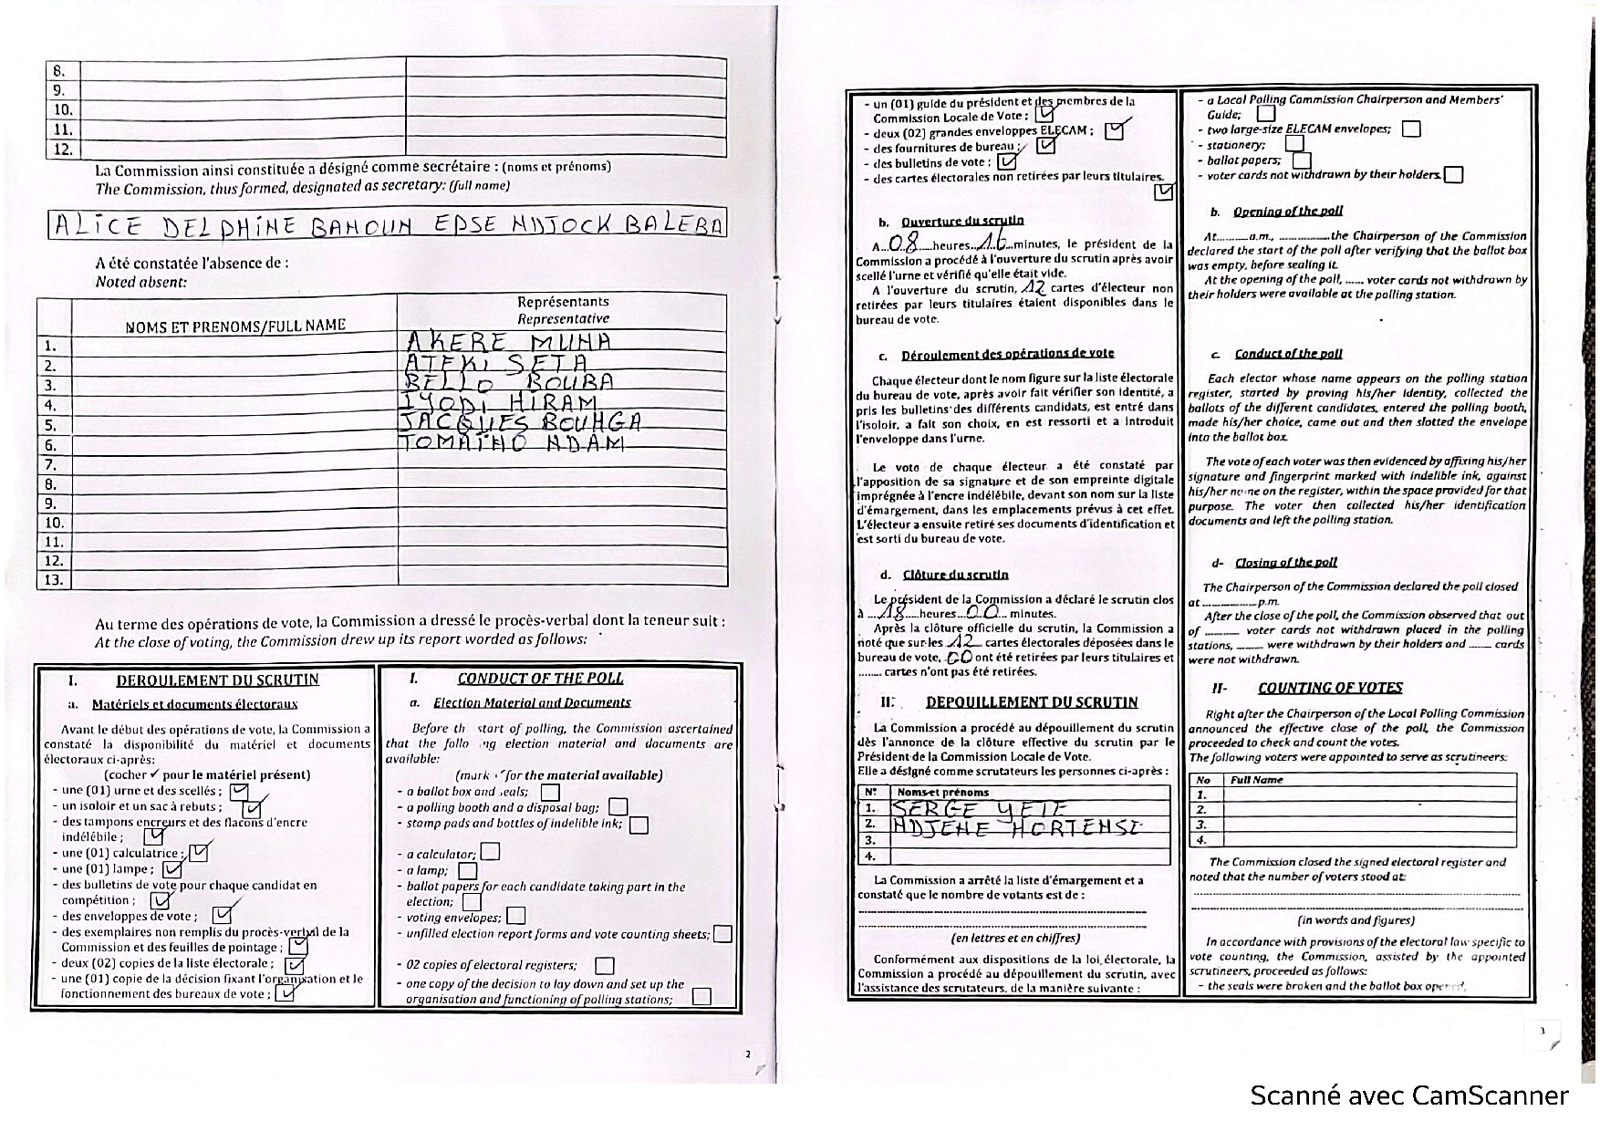 8.
9.
10.
11.
12.
La Commission ainsi constituée a désigné comme secrétaire : (noms et prénoms)
The Commission, thus formed, designated as secretary: (full name)
ALICE DELPHINE BAHOUN EPSE NDJOCK BALEBA
A été constatée l'absence de :
Noted absent:
NOMS ET PRENOMS/FULL NAME
Représentants
Representative
1. AKERE MUNA
2. ATEKI SETA
3. BELLO BOUBA
4. IYODI HIRAM
5. JACQUES BOUHGA
6. TOMAÏNO NDAM
7.
8.
9.
10.
11.
12.
13.
Au terme des opérations de vote, la Commission a dressé le procès-verbal dont la teneur suit :
At the close of voting, the Commission drew up its report worded as follows:
I. DEROULEMENT DU SCRUTIN
a. Matériels et documents électoraux
Avant le début des opérations de vote, la Commission a
constaté la disponibilité du matériel et documents
électoraux ci-après:
(cocher ✓ pour le matériel présent)
- une (01) urne et des scellés ;
- un isoloir et un sac à rebuts ;
- des tampons encreurs et des flacons d'encre
indélébile ;
- une (01) calculatrice ;
- une (01) lampe ;
- des bulletins de vote pour chaque candidat en
compétition ;
- des enveloppes de vote ;
- des exemplaires non remplis du procès-verbal de la
Commission et des feuilles de pointage ;
- deux (02) copies de la liste électorale ;
- une (01) copie de la décision fixant l'organisation et le
fonctionnement des bureaux de vote ;
I. CONDUCT OF THE POLL
a. Election Material and Documents
Before th start of polling, the Commission ascertained
that the follo ng election material and documents are
available:
(mark ✓ for the material available)
- a ballot box and seals;
- a polling booth and a disposal bag;
- stamp pads and bottles of indelible ink;
- a calculator;
- a lamp;
- ballot papers for each candidate taking part in the
election;
- voting envelopes;
- unfilled election report forms and vote counting sheets;
- 02 copies of electoral registers;
- one copy of the decision to lay down and set up the
organisation and functioning of polling stations;
2
- un (01) guide du président et des membres de la
Commission Locale de Vote ;
- deux (02) grandes enveloppes ELECAM ;
- des fournitures de bureau ;
- des bulletins de vote ;
- des cartes électorales non retirées par leurs titulaires.
b. Ouverture du scrutin
A...08...heures...16...minutes, le président de la
Commission a procédé à l'ouverture du scrutin après avoir
scellé l'urne et vérifié qu'elle était vide.
A l'ouverture du scrutin, 12 cartes d'électeur non
retirées par leurs titulaires étaient disponibles dans le
bureau de vote.
c. Déroulement des opérations de vote
Chaque électeur dont le nom figure sur la liste électorale
du bureau de vote, après avoir fait vérifier son identité, a
pris les bulletins des différents candidats, est entré dans
l'isoloir, a fait son choix, en est ressorti et a introduit
l'enveloppe dans l'urne.
Le vote de chaque électeur a été constaté par
l'apposition de sa signature et de son empreinte digitale
imprégnée à l'encre indélébile, devant son nom sur la liste
d'émargement, dans les emplacements prévus à cet effet.
L'électeur a ensuite retiré ses documents d'identification et
est sorti du bureau de vote.
d. Clôture du scrutin
Le président de la Commission a déclaré le scrutin clos
à ...18...heures...00... minutes.
Après la clôture officielle du scrutin, la Commission a
noté que sur les 12 cartes électorales déposées dans le
bureau de vote, 00 ont été retirées par leurs titulaires et
........ cartes n'ont pas été retirées.
II. DEPOUILLEMENT DU SCRUTIN
La Commission a procédé au dépouillement du scrutin
dès l'annonce de la clôture effective du scrutin par le
Président de la Commission Locale de Vote.
Elle a désigné comme scrutateurs les personnes ci-après :
N° Noms et prénoms
1. SERGE YETE
2. NDJENE HORTENSE
3.
4.
La Commission a arrêté la liste d'émargement et a
constaté que le nombre de votants est de :
(en lettres et en chiffres)
Conformément aux dispositions de la loi électorale, la
Commission a procédé au dépouillement du scrutin, avec
l'assistance des scrutateurs, de la manière suivante :
- a Local Polling Commission Chairperson and Members'
Guide;
- two large-size ELECAM envelopes;
- stationery;
- ballot papers;
- voter cards not withdrawn by their holders.
b. Opening of the poll
At..........a.m., ................the Chairperson of the Commission
declared the start of the poll after verifying that the ballot box
was empty, before sealing it.
At the opening of the poll, ...... voter cards not withdrawn by
their holders were available at the polling station.
c. Conduct of the poll
Each elector whose name appears on the polling station
register, started by proving his/her identity, collected the
ballots of the different candidates, entered the polling booth,
made his/her choice, came out and then slotted the envelope
into the ballot box.
The vote of each voter was then evidenced by affixing his/her
signature and fingerprint marked with indelible ink, against
his/her name on the register, within the space provided for that
purpose. The voter then collected his/her identification
documents and left the polling station.
d- Closing of the poll
The Chairperson of the Commission declared the poll closed
at ..................p.m.
After the close of the poll, the Commission observed that out
of .......... voter cards not withdrawn placed in the polling
stations, ........ were withdrawn by their holders and ....... cards
were not withdrawn.
II- COUNTING OF VOTES
Right after the Chairperson of the Local Polling Commission
announced the effective close of the poll, the Commission
proceeded to check and count the votes.
The following voters were appointed to serve as scrutineers:
No Full Name
1.
2.
3.
4.
The Commission closed the signed electoral register and
noted that the number of voters stood at:
(in words and figures)
In accordance with provisions of the electoral law specific to
vote counting, the Commission, assisted by the appointed
scrutineers, proceeded as follows:
- the seals were broken and the ballot box opened,
3
Scanné avec CamScanner